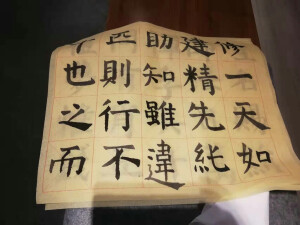 修一天如
建精先純
助知雖違
匹則行不
也之而